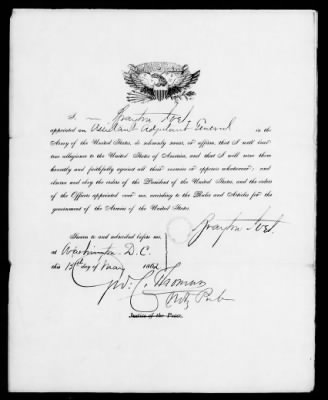 I, Brayton Ives
appointed an Assistant Adjutant General in the
Army of the United States, do solemnly swear, or affirm, that I will bear
true allegiance to the United States of America, and that I will serve them
honestly and faithfully against all their enemies or opposers whatsoever; and
observe and obey the orders of the President of the United States, and the orders
of the Officers appointed over me, according to the Rules and Articles for the
government of the Armies of the United States.
Brayton Ives
Sworn to and subscribed before me,
at Washington D.C.
this 13th day of May 1862
C. Thomas
Noty Pub
Justice of the Peace.